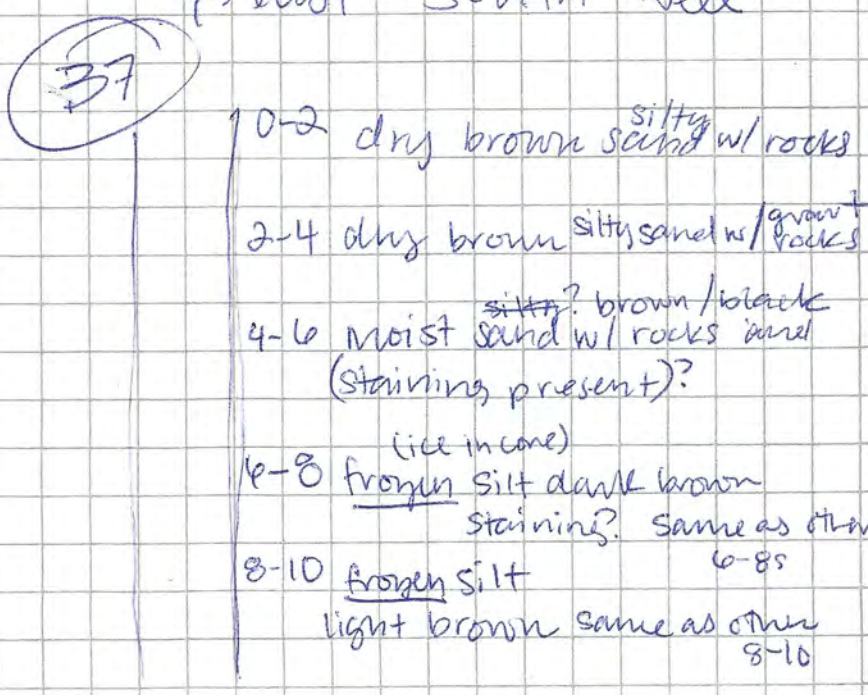 37
0-2 dry brown silty sand w/ rocks
2-4 dry brown silty sand w/ rocks
silty? brown/black
4-6 moist sand w/ rocks and
(staining present)?
(ice in core)
6-8 frozen silt dark brown
staining? same as other
6-8s
8-10 frozen silt
light brown same as other
8-10